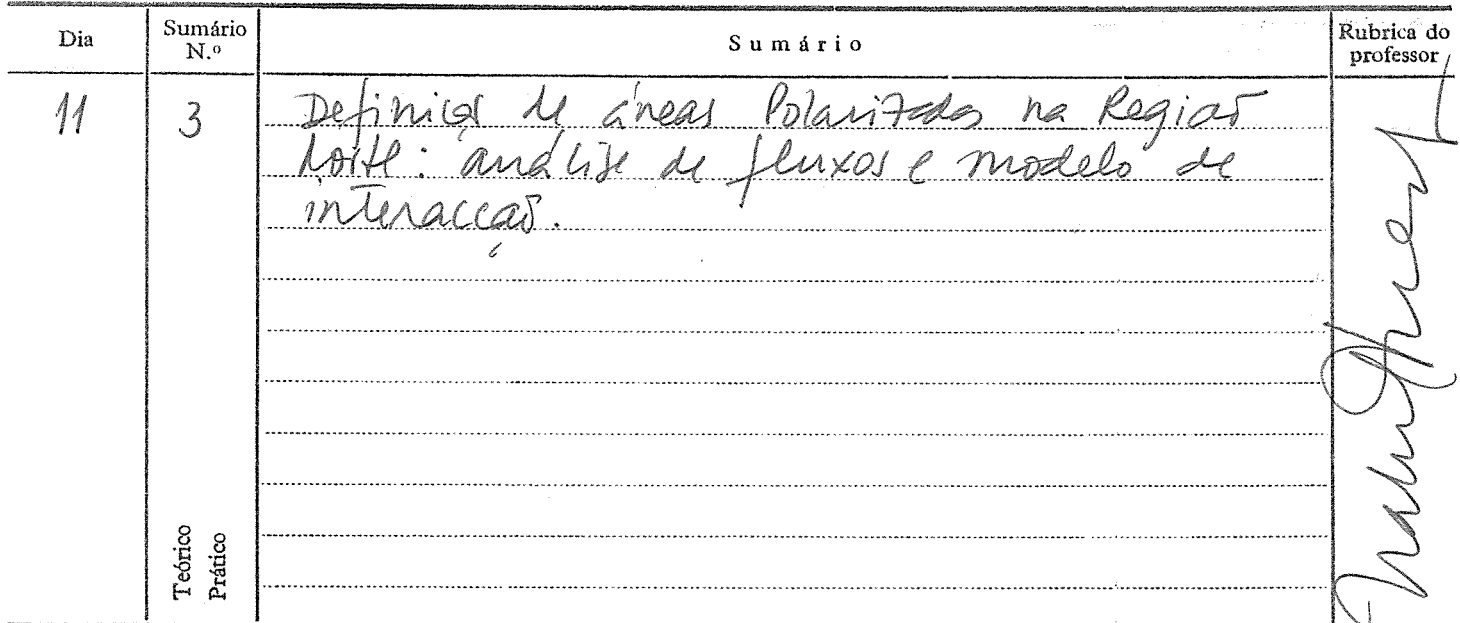 Dia
Sumário N.º
Sumário
Rubrica do professor
11
3
Definição de áreas Polarizadas na Região
Norte: análise de fluxos e modelo de
interacção.
Teórico
Prático